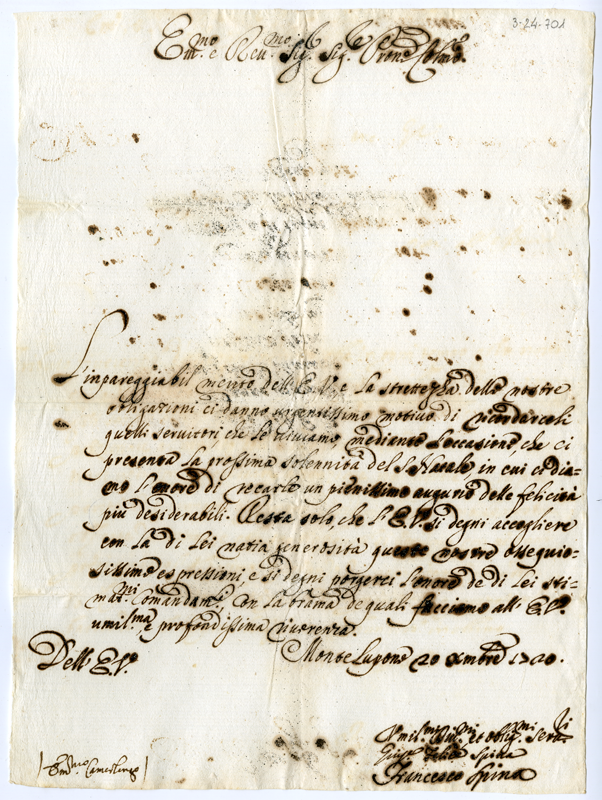 3-24-701
Em.mo e Rev.mo Sig.r Sig.r Pron.e Col.mo
L'inpareggiabil merito dell'E.V. e la strettezza delle nostre
obligazioni ci danno urgentissimo motivo di ricordarceli
quelli servitori che le viviamo mediante l'occasione, che ci
presenta la prossima solennità del S. Natale, in cui ci dia-
mo l'onore di recarle un pienissimo augurio delle felicità
più desiderabili. Resta solo, che l'E.V. si degni accogliere
con la di Lei natia generosità queste nostre ossequio-
sissime espressioni, e si degni porgerci l'onore de di Lei sti-
mat.mi Comandam.ti, con la brama de quali facciamo all'E.V.
umil.ma, e profondissima riverenza.
Dell'E.V.
Monte Lupone 20 Xmbre 1720.
Umil.mi et oblig.mi Serv.ri
Spina
Francesco Spina
Em.mo Camerlengo